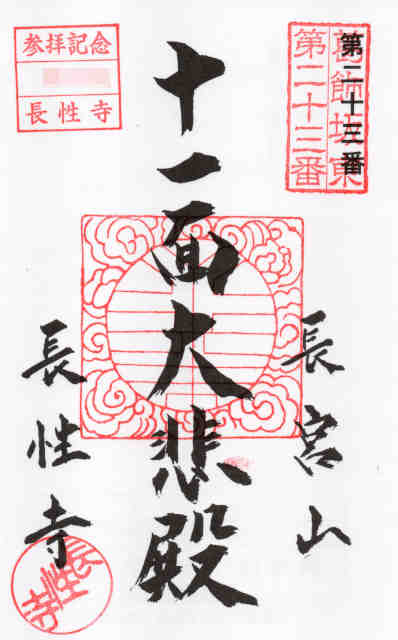 葛飾坂東
第二十三番
第二十三番
長宮山
十一面大悲殿
参拝記念
長性寺
長性寺
長性寺